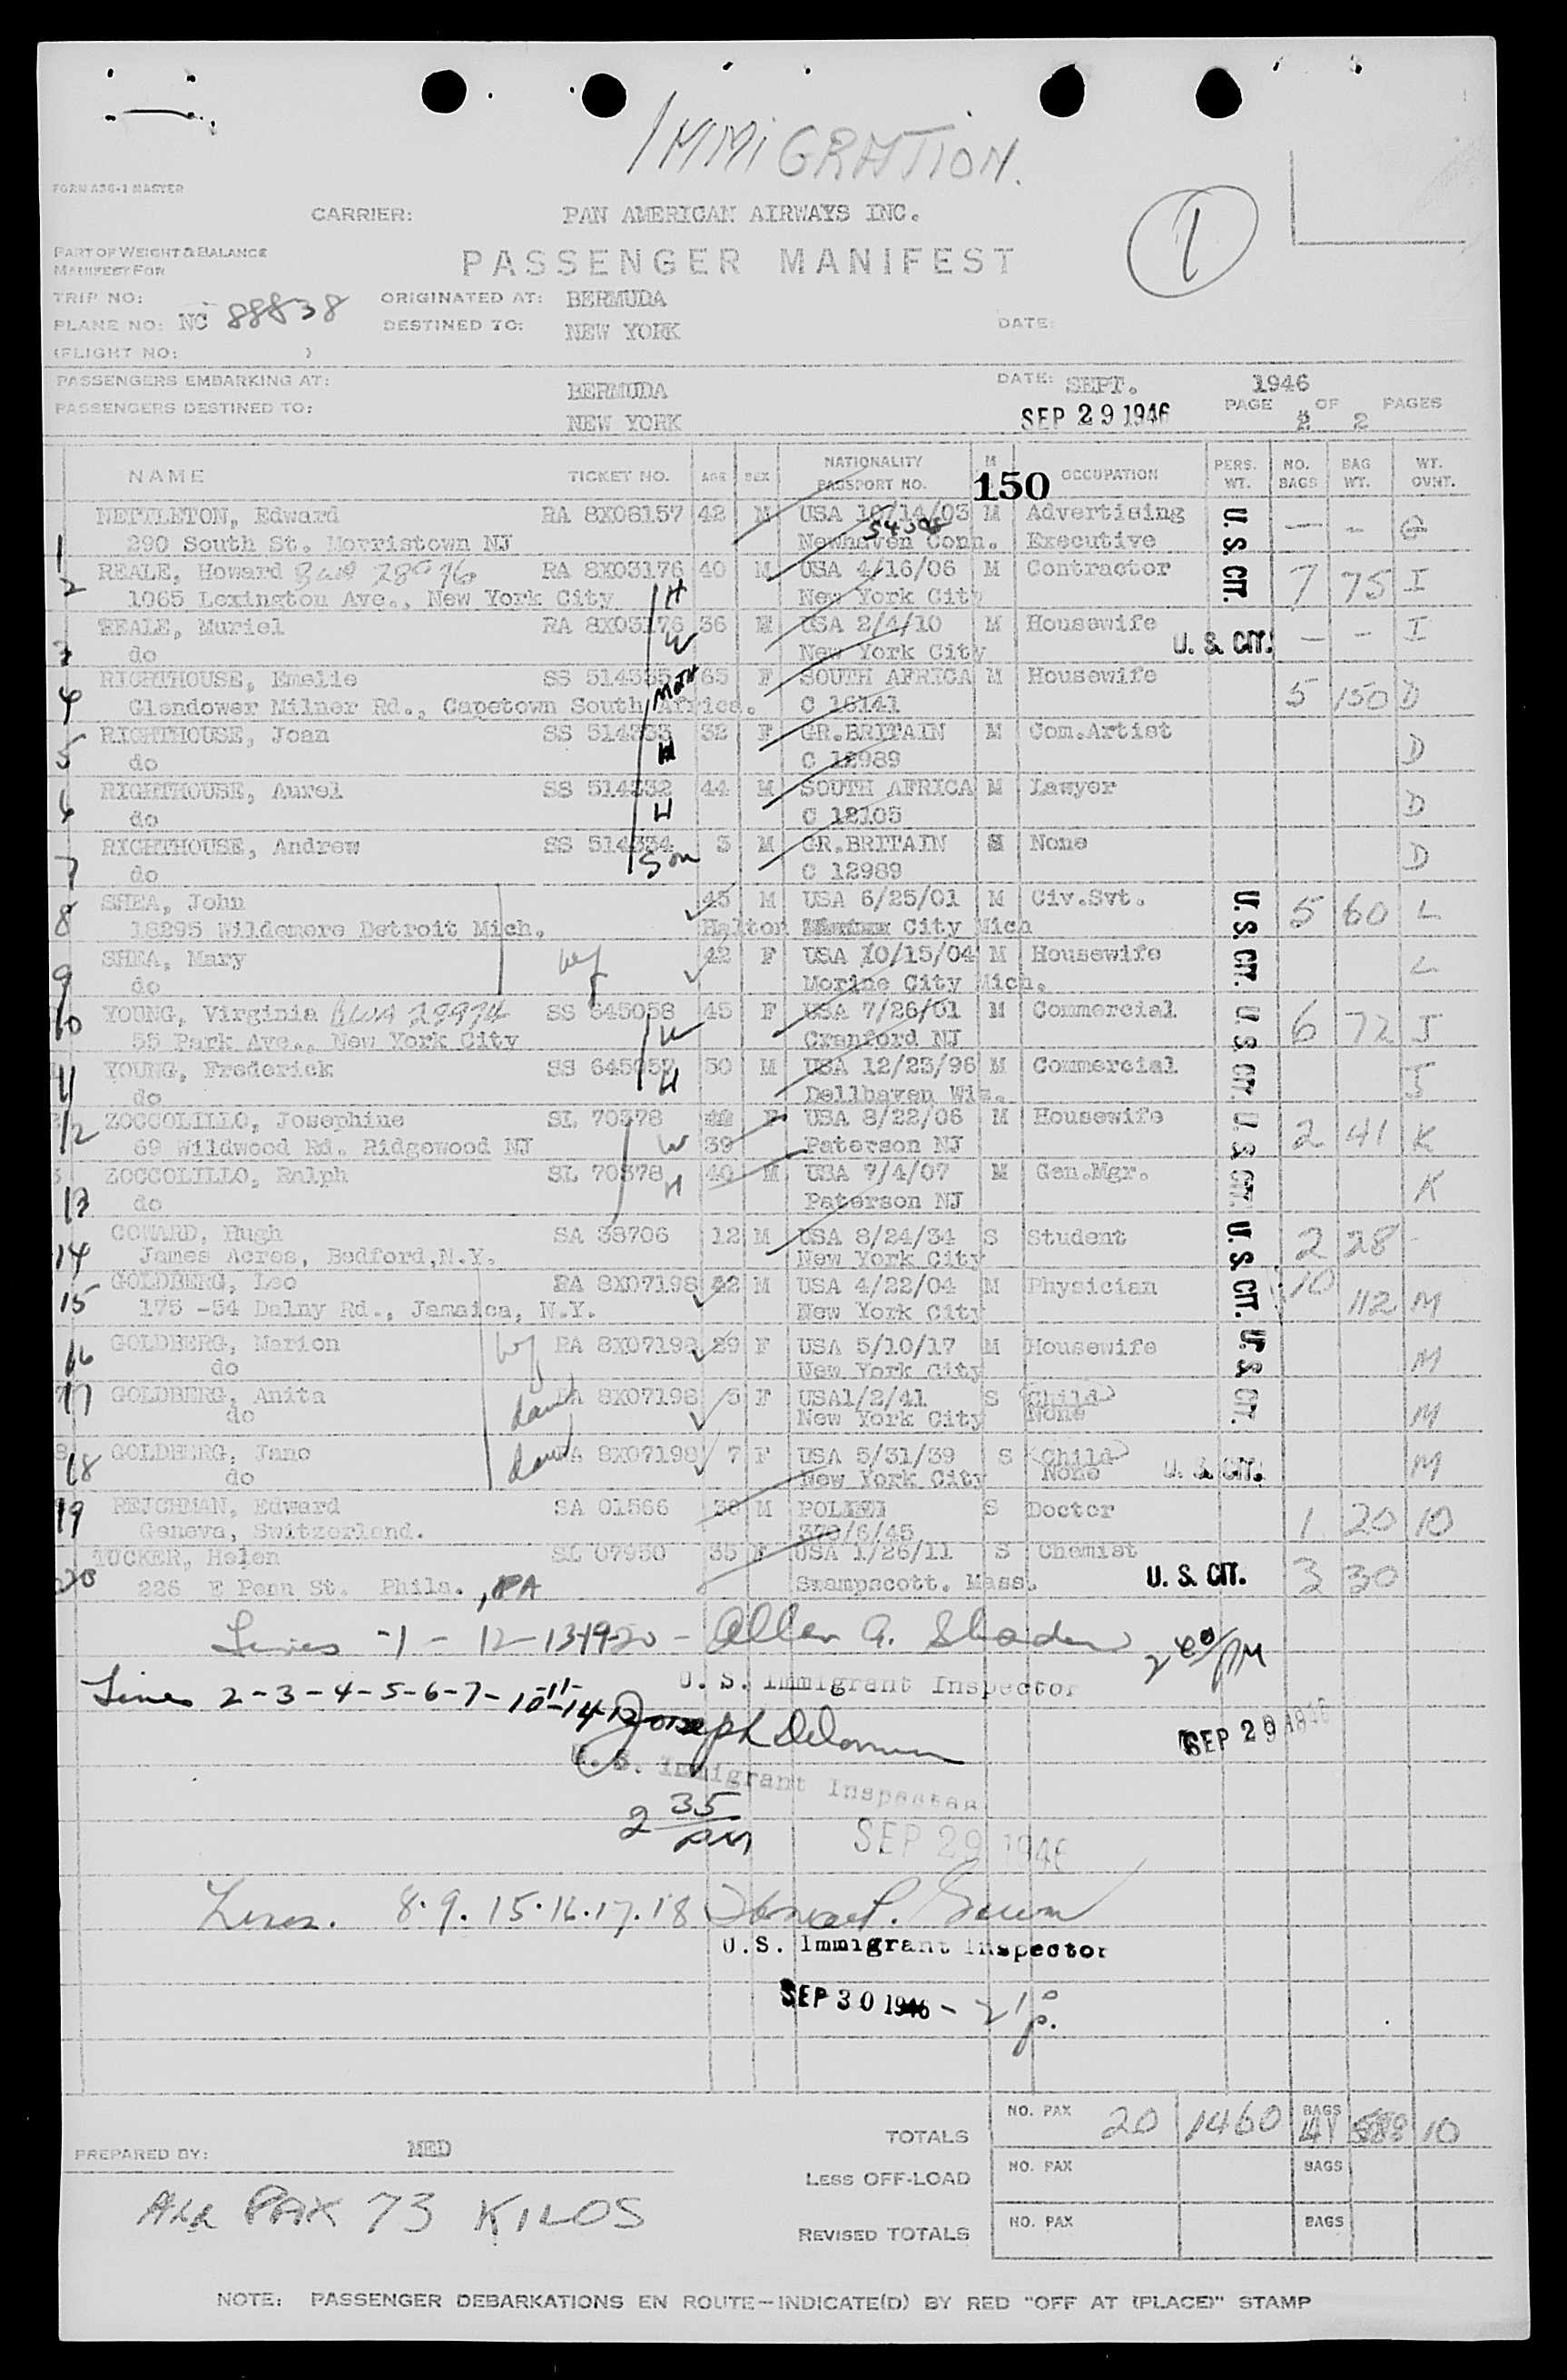 IMMIGRATION.
FORM A36-1 MASTER
CARRIER: PAN AMERICAN AIRWAYS INC.
1
PART OF WEIGHT & BALANCE
MANIFEST FOR
PASSENGER MANIFEST
TRIP NO: ORIGINATED AT: BERMUDA
PLANE NO: NC 88838 DESTINED TO: NEW YORK DATE:
(FLIGHT NO: )
PASSENGERS EMBARKING AT: BERMUDA DATE: SEPT. 1946
PASSENGERS DESTINED TO: NEW YORK SEP 29 1946 PAGE 2 OF 2 PAGES
NAME TICKET NO. AGE SEX NATIONALITY PASSPORT NO. M 150 OCCUPATION PERS. WT. NO. BAGS BAG WT. WT. OVNT.
NETTLETON, Edward RA 8X08157 42 M USA 10/14/03 M Advertising U.S. CIT. — –
1 290 South St. Morristown NJ Newhaven Conn. Executive
2 REALE, Howard BWA 28976 RA 8X03176 40 M USA 4/16/06 M Contractor U.S. CIT. 7 75 I
1065 Lexington Ave., New York City H New York City
REALE, Muriel RA 8X03176 36 M USA 2/4/10 M Housewife U. S. CIT. — – I
3 do W New York City
4 RIGHTHOUSE, Emelie SS 514335 65 F SOUTH AFRICA M Housewife 5 150 D
Glendower Milner Rd., Capetown South Africa. C 16141
5 RIGHTHOUSE, Joan SS 514333 32 F GR.BRITAIN M Com.Artist D
do C 12989
6 RIGHTHOUSE, Aurel SS 514332 44 M SOUTH AFRICA M Lawyer D
do H C 12105
RIGHTHOUSE, Andrew SS 514334 3 M GR.BRITAIN S None D
7 do Son C 12989
8 SHEA, John 45 M USA 6/25/01 M Civ.Svt. U.S. CIT. 5 60 L
18295 Wildemere Detroit Mich. Halton City Mich
SHEA, Mary wf 42 F USA 10/15/04 M Housewife U.S. CIT. L
9 do Morine City Mich.
10 YOUNG, Virginia BWA 28974 SS 645058 45 F USA 7/26/01 M Commercial U.S. CIT. 6 72 J
55 Park Ave., New York City W Cranford NJ
11 YOUNG, Frederick SS 645057 50 M USA 12/23/96 M Commercial U.S. CIT. J
do H Dellhaven Wis.
12 ZOCCOLILLO, Josephine SL 70378 F USA 8/22/06 M Housewife U.S. CIT. 2 41 K
69 Wildwood Rd. Ridgewood NJ W 39 Paterson NJ
ZOCCOLILLO, Ralph SL 70378 40 M USA 7/4/07 M Gen.Mgr. U.S. CIT. K
13 do H Paterson NJ
14 COWARD, Hugh SA 38706 12 M USA 8/24/34 S Student U.S. CIT. 2 28 –
James Acres, Bedford,N.Y. New York City
15 GOLDBERG, Leo RA 8X07198 42 M USA 4/22/04 M Physician 10 112 M
175 -54 Dalny Rd., Jamaica, N.Y. New York City
16 GOLDBERG, Marion wf RA 8X07198 29 F USA 5/10/17 M Housewife U.S. CIT. M
do New York City
17 GOLDBERG, Anita dau RA 8X07198 5 F USA1/2/41 S (Child) M
do New York City None
18 GOLDBERG, Jane dau RA 8X07198 7 F USA 5/31/39 S (Child) M
do New York City None U. S. CIT.
19 REJCHMAN, Edward SA 01566 38 M POLISH S Doctor 1 20 10
Geneva, Switzerland. 378/6/45
TUCKER, Helen SL 07950 35 F USA 1/26/11 S Chemist
20 226 E Penn St. Phila. , PA Swampscott. Mass. U. S. CIT. 3 30
Lines -1 - 12-13-19-20 - Allen G. Shaden 2 PM
U. S. Immigrant Inspector
Lines 2-3-4-5-6-7-10-11-14 Joseph
SEP 29 1946
U. S. Immigrant Inspector
2 35 PM
SEP 29 1946
Lines. 8.9.15.16.17.18
U.S. Immigrant Inspector
SEP 30 1946 – 2 10 p.
TOTALS NO. PAX 20 1460 BAGS 41 10
PREPARED BY: MED
LESS OFF-LOAD NO. PAX BAGS
ALL PAX 73 KILOS
REVISED TOTALS NO. PAX BAGS
NOTE: PASSENGER DEBARKATIONS EN ROUTE—INDICATE(D) BY RED "OFF AT (PLACE)" STAMP